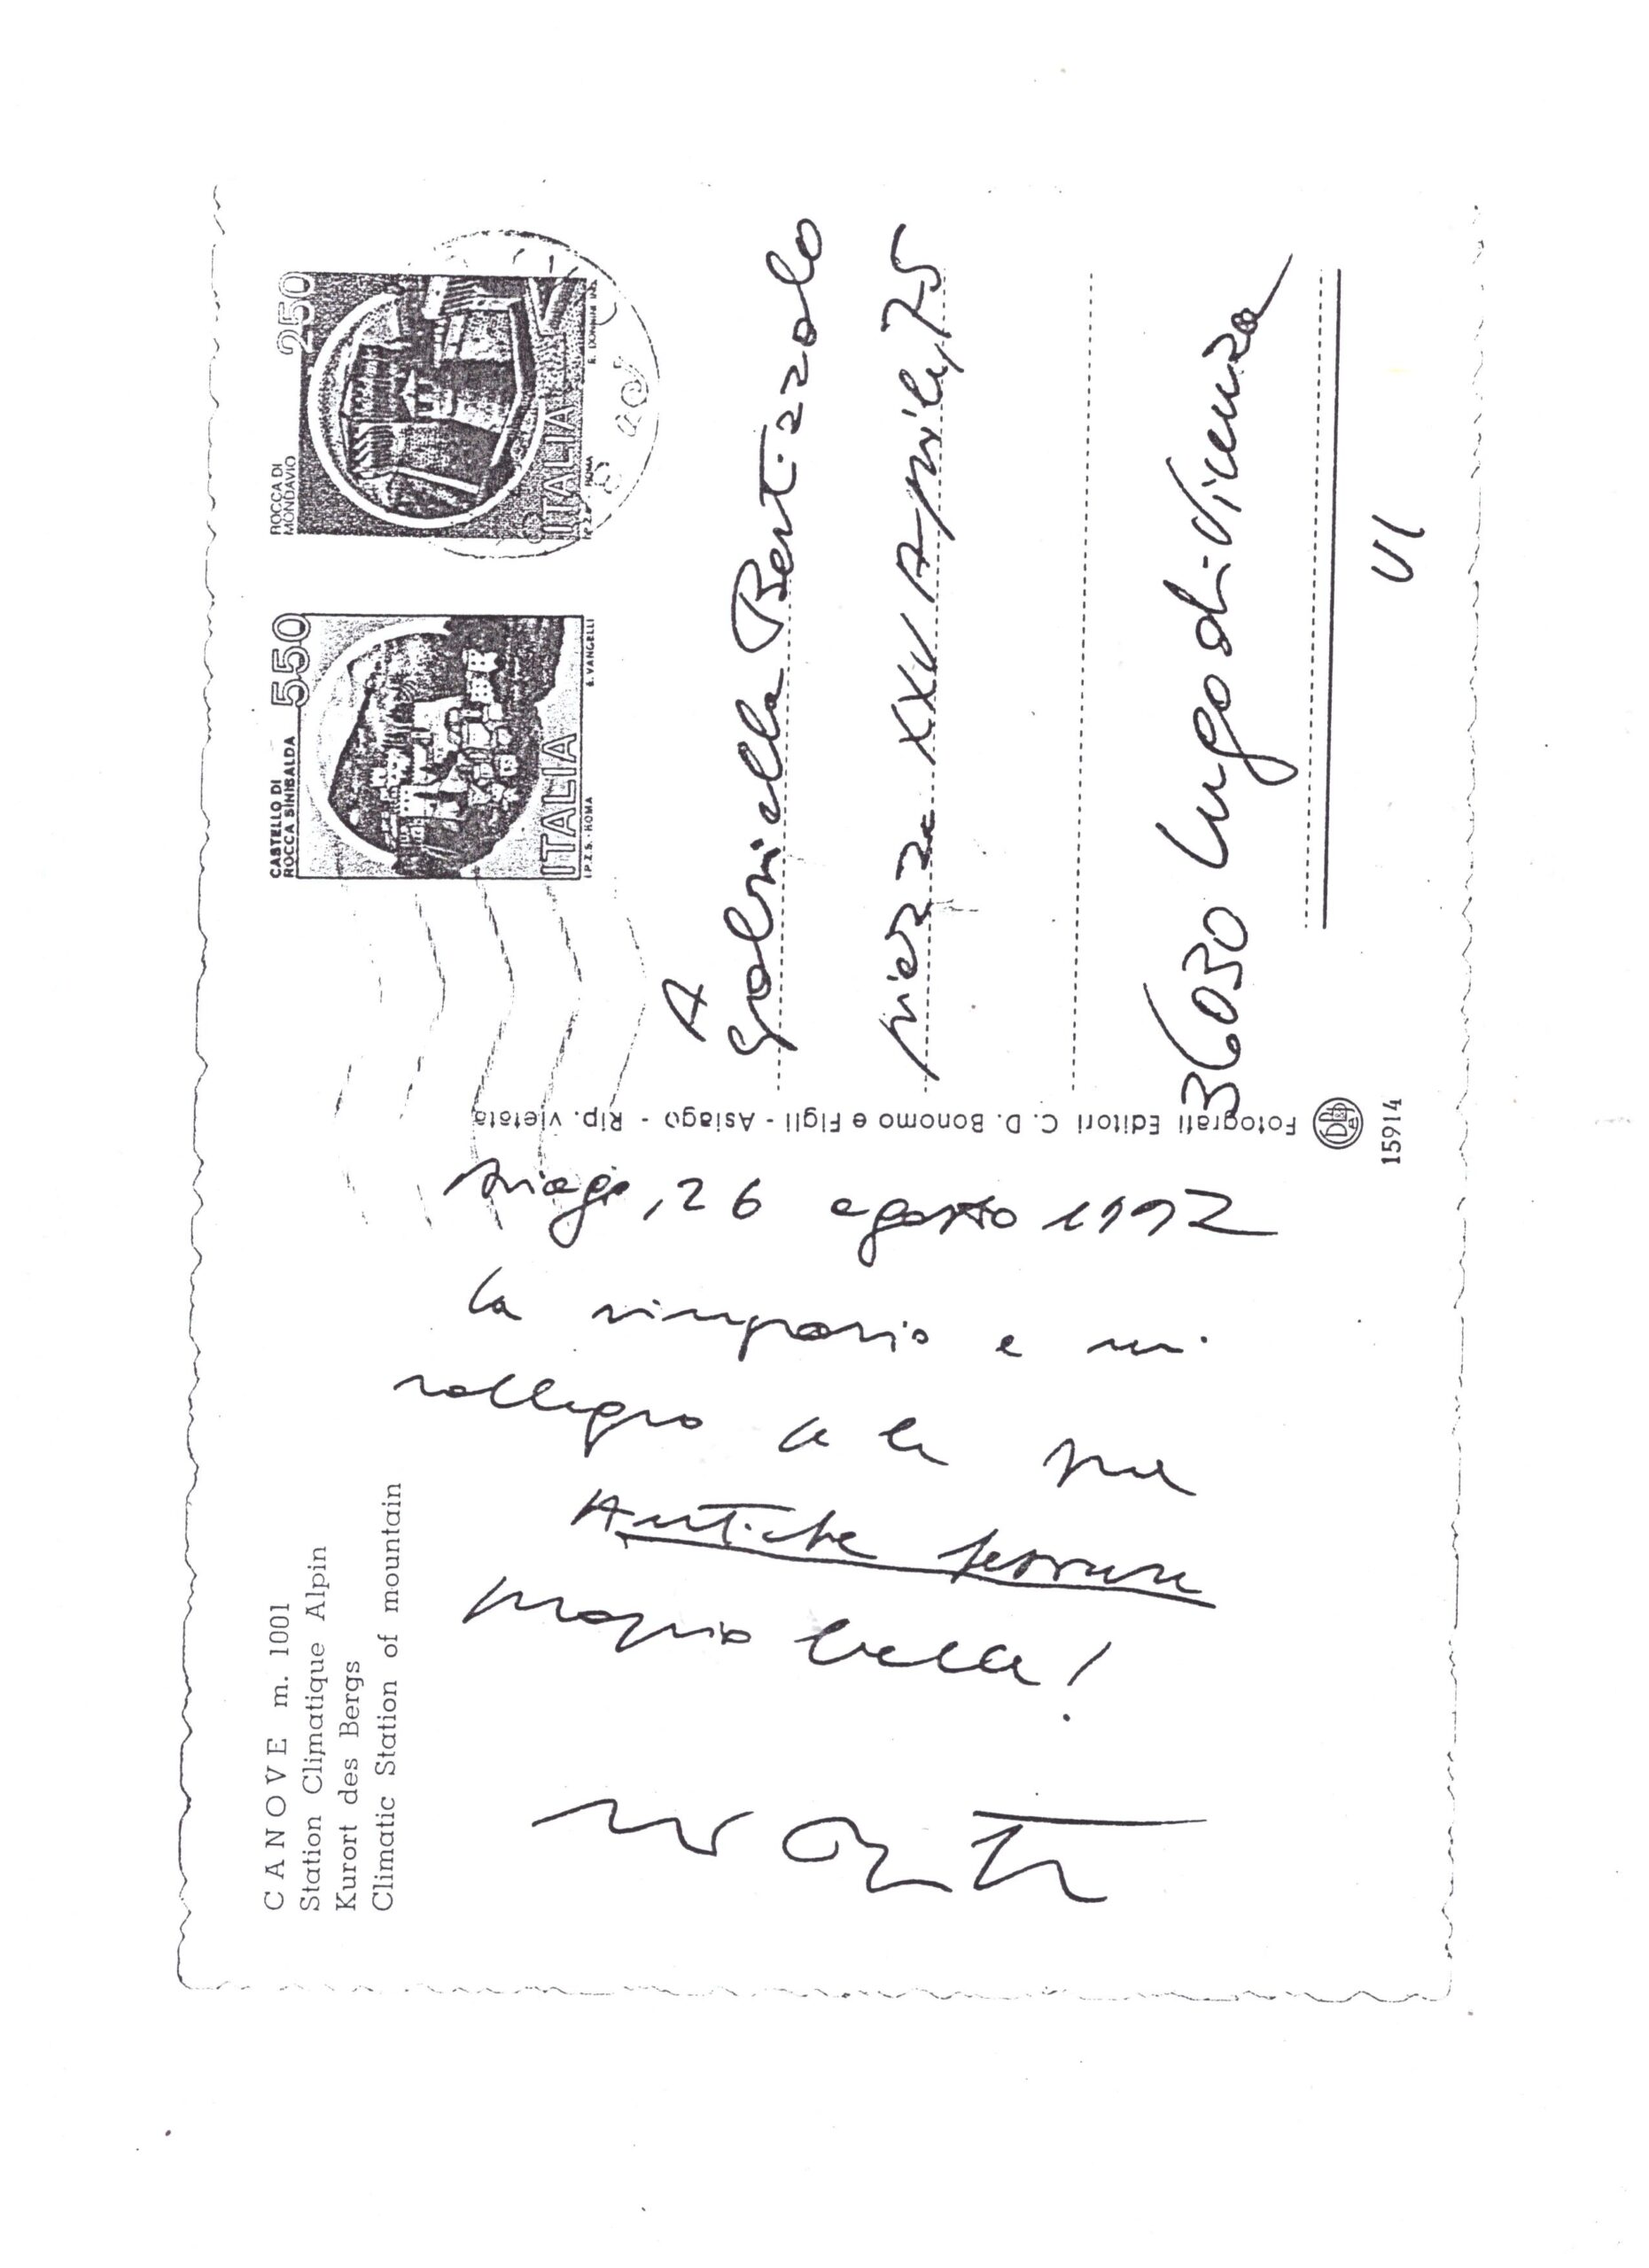 CANOVE m. 1001
Station Climatique Alpin
Kurort des Bergs
Climatic Station of mountain
Asiago, 26 agosto 1992
La ringrazio e mi
rallegro le sue
Antiche
proprio bella!
Fotografi Editori C. D. Bonomo e Figli - Asiago - Rip. vietata
15914
CASTELLO DI
ROCCA SINIBALDA
550
ITALIA
I.P.Z.S. - ROMA
E. VANGELLI
ROCCA DI
MONDAVIO
250
ITALIA
ROMA
A
Gabriella Bertizzolo
piazza XXV Aprile, 75
36030 Lugo di Vicenza
VI